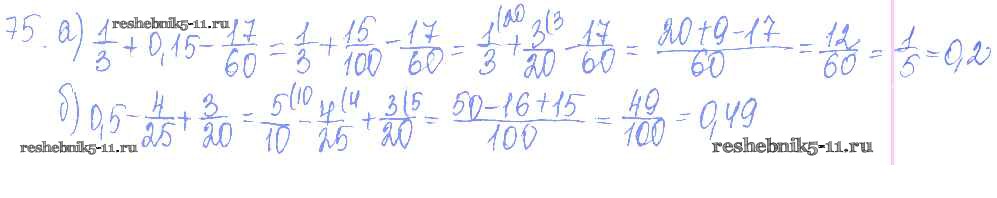 reshebnik5-11.ru
75. а) 1/3 + 0,15 - 17/60 = 1/3 + 15/100 - 17/60 = 1(20/3 + 3(3/20 - 17/60 = 20+9-17/60 = 12/60 = 1/5 = 0,2
б) 0,5 - 4/25 + 3/20 = 5(10/10 - 4(4/25 + 3(5/20 = 50-16+15/100 = 49/100 = 0,49
reshebnik5-11.ru
reshebnik5-11.ru